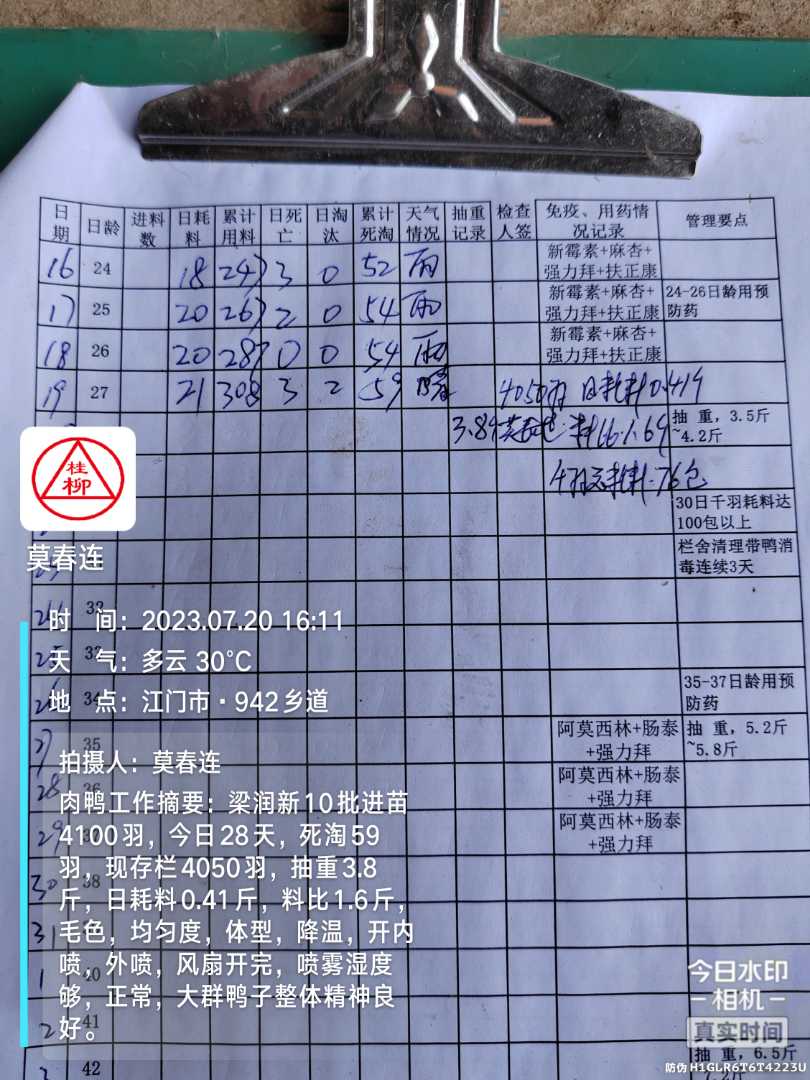 日期 日龄 进料数 日耗料 累计用料 日死亡 日淘汰 累计死淘 天气情况 抽重记录 检查人签 免疫、用药情况记录 管理要点
16 24 18 247 3 0 52 雨 新霉素+麻杏+强力拜+扶正康
17 25 20 267 2 0 54 雨 新霉素+麻杏+强力拜+扶正康 24-26日龄用预防药
18 26 20 287 0 0 54 雨 新霉素+麻杏+强力拜+扶正康
19 27 21 308 3 2 59 4050羽 日耗料0.41
抽 重，3.5斤~4.2斤
30日千羽耗料达100包以上
栏舍清理带鸭消毒连续3天
35-37日龄用预防药
27 35 阿莫西林+肠泰+强力拜 抽 重，5.2斤~5.8斤
28 36 阿莫西林+肠泰+强力拜
29 阿莫西林+肠泰+强力拜
30 38
31
1 40
2 41
42 抽 重，6.5斤
桂柳
莫春连
时 间：2023.07.20 16:11
天 气：多云 30℃
地 点：江门市·942乡道
拍摄人：莫春连
肉鸭工作摘要：梁润新10批进苗
4100羽，今日28天，死淘59
羽，现存栏4050羽，抽重3.8
斤，日耗料0.41斤，料比1.6斤，
毛色，均匀度，体型，降温，开内
喷，外喷，风扇开完，喷雾湿度
够，正常，大群鸭子整体精神良
好。
今日水印
相机
真实时间
防伪 H1GLR6T6T4223U